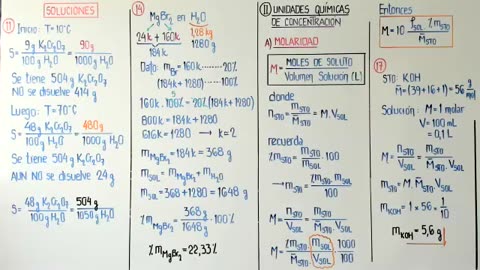 SOLUCIONES
11 Inicio: T=10°C
S = 9 g K₂Cr₂O₇ / 100 g H₂O = 90 g / 1000 g H₂O
Se tiene 504 g K₂Cr₂O₇
NO se disuelve 414 g
Luego: T=70°C
S = 48 g K₂Cr₂O₇ / 100 g H₂O = 480 g / 1000 g H₂O
Se tiene 504 g K₂Cr₂O₇
AUN NO se disuelve 24 g
S = 48 g K₂Cr₂O₇ / 100 g H₂O = 504 g / 1050 g H₂O
14 MgBr₂ en H₂O
24k + 160k 1,28 kg
184k 1280 g
Dato: m Br = 160k ... 20%
(184k + 1280) ... 100%
160k · 100% = 20% (184k + 1280)
800k = 184k + 1280
616k = 1280 → k = 2
m MgBr₂ = 184k = 368 g
m SOL = m MgBr₂ + m H₂O
m SOL = 368 + 1280 = 1648 g
%m MgBr₂ = 368 g / 1648 g · 100%
%m MgBr₂ = 22,33%
II UNIDADES QUÍMICAS
DE CONCENTRACIÓN
A) MOLARIDAD
M = MOLES DE SOLUTO / Volumen Solución (L)
donde
n STO = m STO / M̄ STO = M · V SOL
recuerda
%m STO = m STO / m SOL · 100
→ m STO = %m STO · m SOL / 100
M = n STO / V SOL = m STO / M̄ STO · V SOL
M = %m STO / M̄ STO · m SOL / V SOL · 1000 / 100
Entonces
M = 10 ρ SOL · %m STO / M̄ STO
17
STO: KOH
M̄ = (39 + 16 + 1) = 56 g/mol
Solución: M = 1 molar
V = 100 mL
= 0,1 L
M = n STO / V SOL = m STO / M̄ STO · V SOL
m STO = M M̄ STO · V SOL
m KOH = 1 × 56 × 1/10
m KOH = 5,6 g